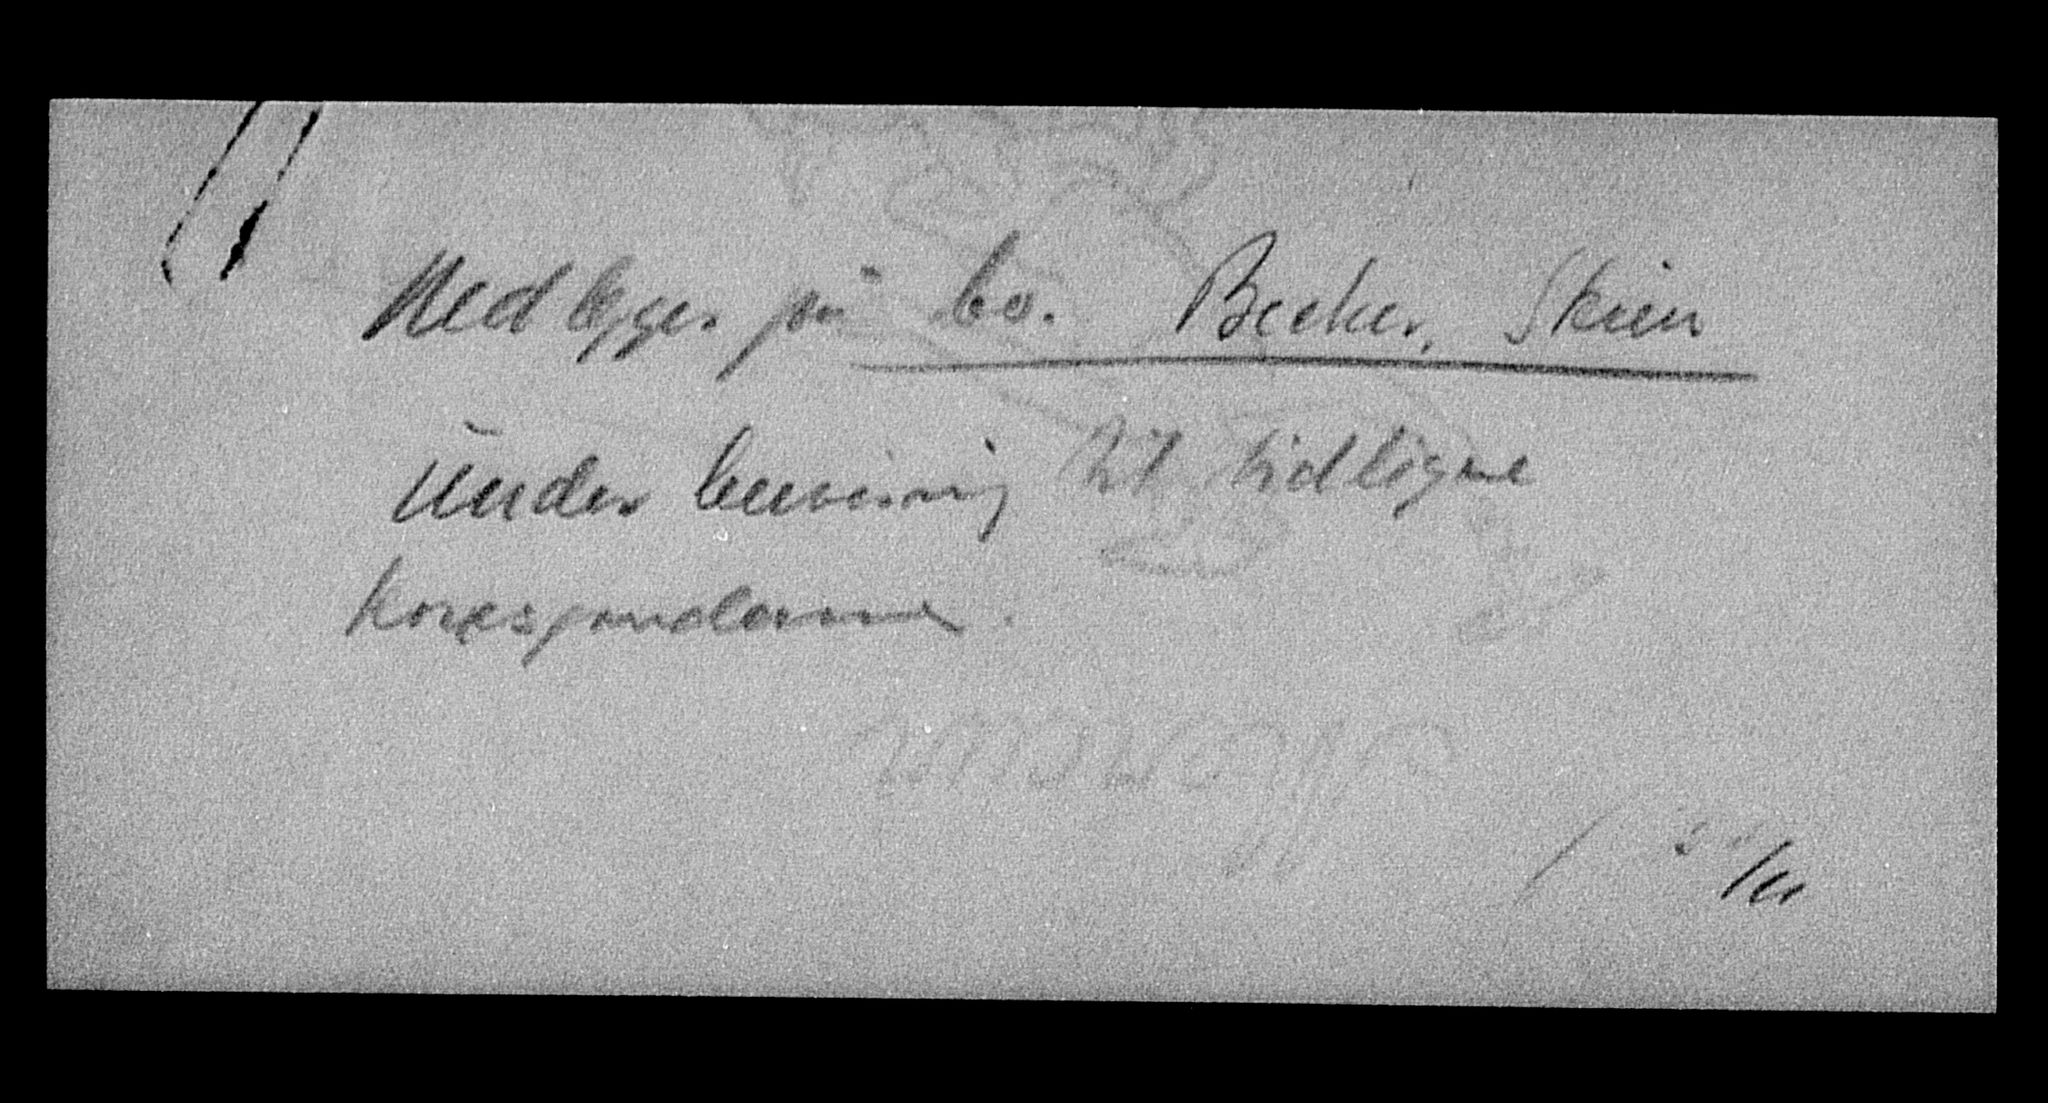 Nedlegges på bo. Becker, Skien
Under henvisning til tidligere
korrespondanse.